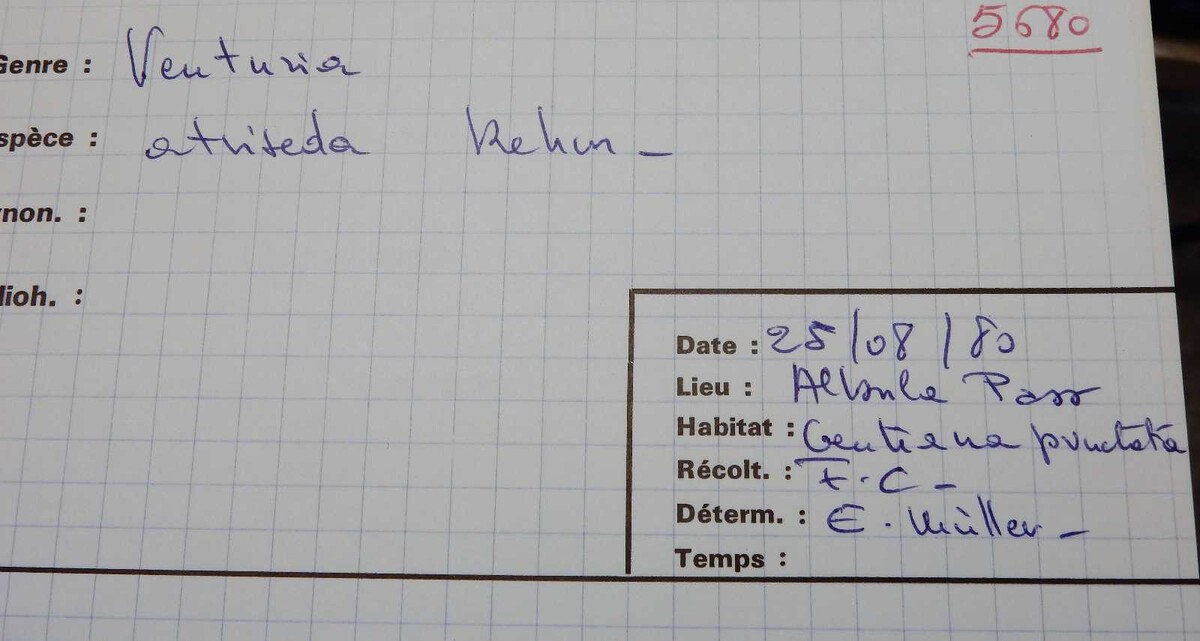 5680
Genre : Venturia
spèce : atriseda Rehm –
non. :
lioh. :
Date : 25/08/80
Lieu : Albula Pass
Habitat : Gentiana punctata
Récolt. : F.C –
Déterm. : E. Müller –
Temps :